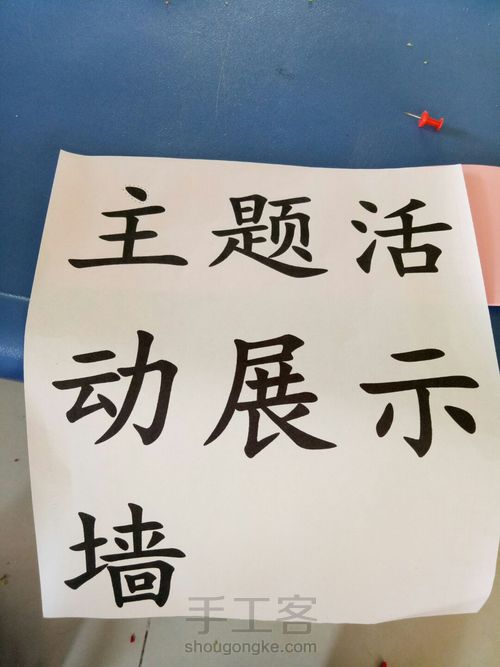 主题活
动展示
墙
手工客
shougongke.com